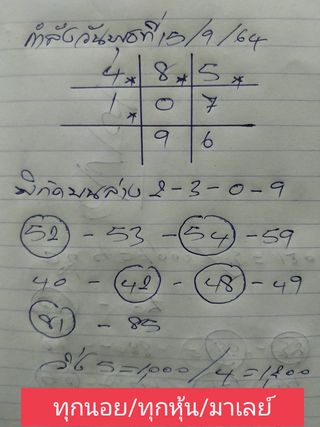 กำลังวันพุธที่ 15/9/64
4* 8* 5*
1* 0 7
9 6
พิกัดบนล่าง 2-3-0-9
52 - 53 - 54 - 59
40 - 42 - 48 - 49
81 - 85
วิ่ง 5=1,000/4=1,200
ทุกนอย/ทุกหุ้น/มาเลย์